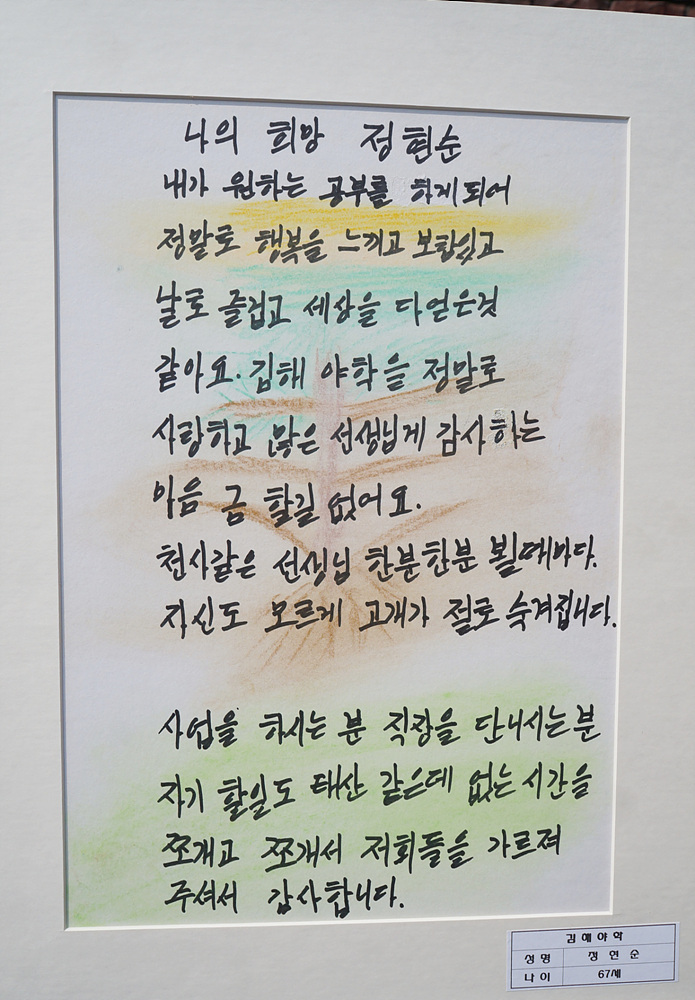 나의 희망 정현순
내가 원하는 공부를 하게 되어
정말로 행복을 느끼고 보람있고
날로 즐겁고 세상을 다 얻은것
같아요. 김해 야학을 정말로
사랑하고 많은 선생님게 감사하는
마음 금 할길 없어요.
천사같은 선생님 한분한분 뵐때마다.
자신도 모르게 고개가 절로 숙겨집니다.
사업을 하시는 분 직장을 단니시는분
자기 할일도 태산 같은데 없는 시간을
쪼개고 쪼개서 저희들을 가르져
주셔서 감사합니다.
김해야학
성명 정현순
나이 67세